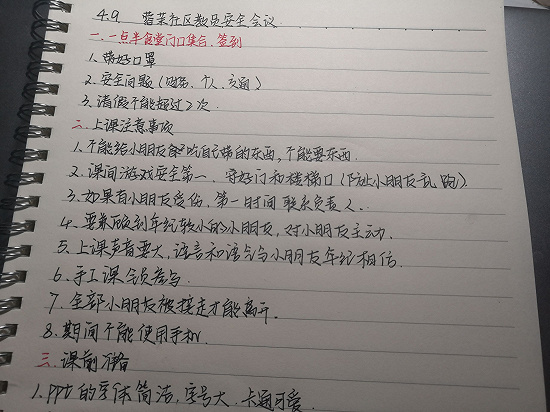 4.9 菁菜社区教员安全会议.
一. 一点半食堂门口集合, 签到
1. 带好口罩
2. 安全问题(、个人、交通)
3. 请假不能超过2次.
二. 上课注意事项
1. 不能给小朋友吃自己带的东西, 不能要东西.
2. 课间游戏安全第一, 守好门和楼梯口(防止小朋友乱跑).
3. 如果有小朋友受伤, 第一时间联系负责人.
4. 要兼顾到年纪较小的小朋友, 对小朋友主动.
5. 上课声音要大, 语言和语气与小朋友年纪相仿.
6. 手工课全员参与.
7. 全部小朋友被接走才能离开.
8. 期间不能使用手机.
三. 课前准备
1. ppt的字体简洁, 字号大. 卡通可爱.